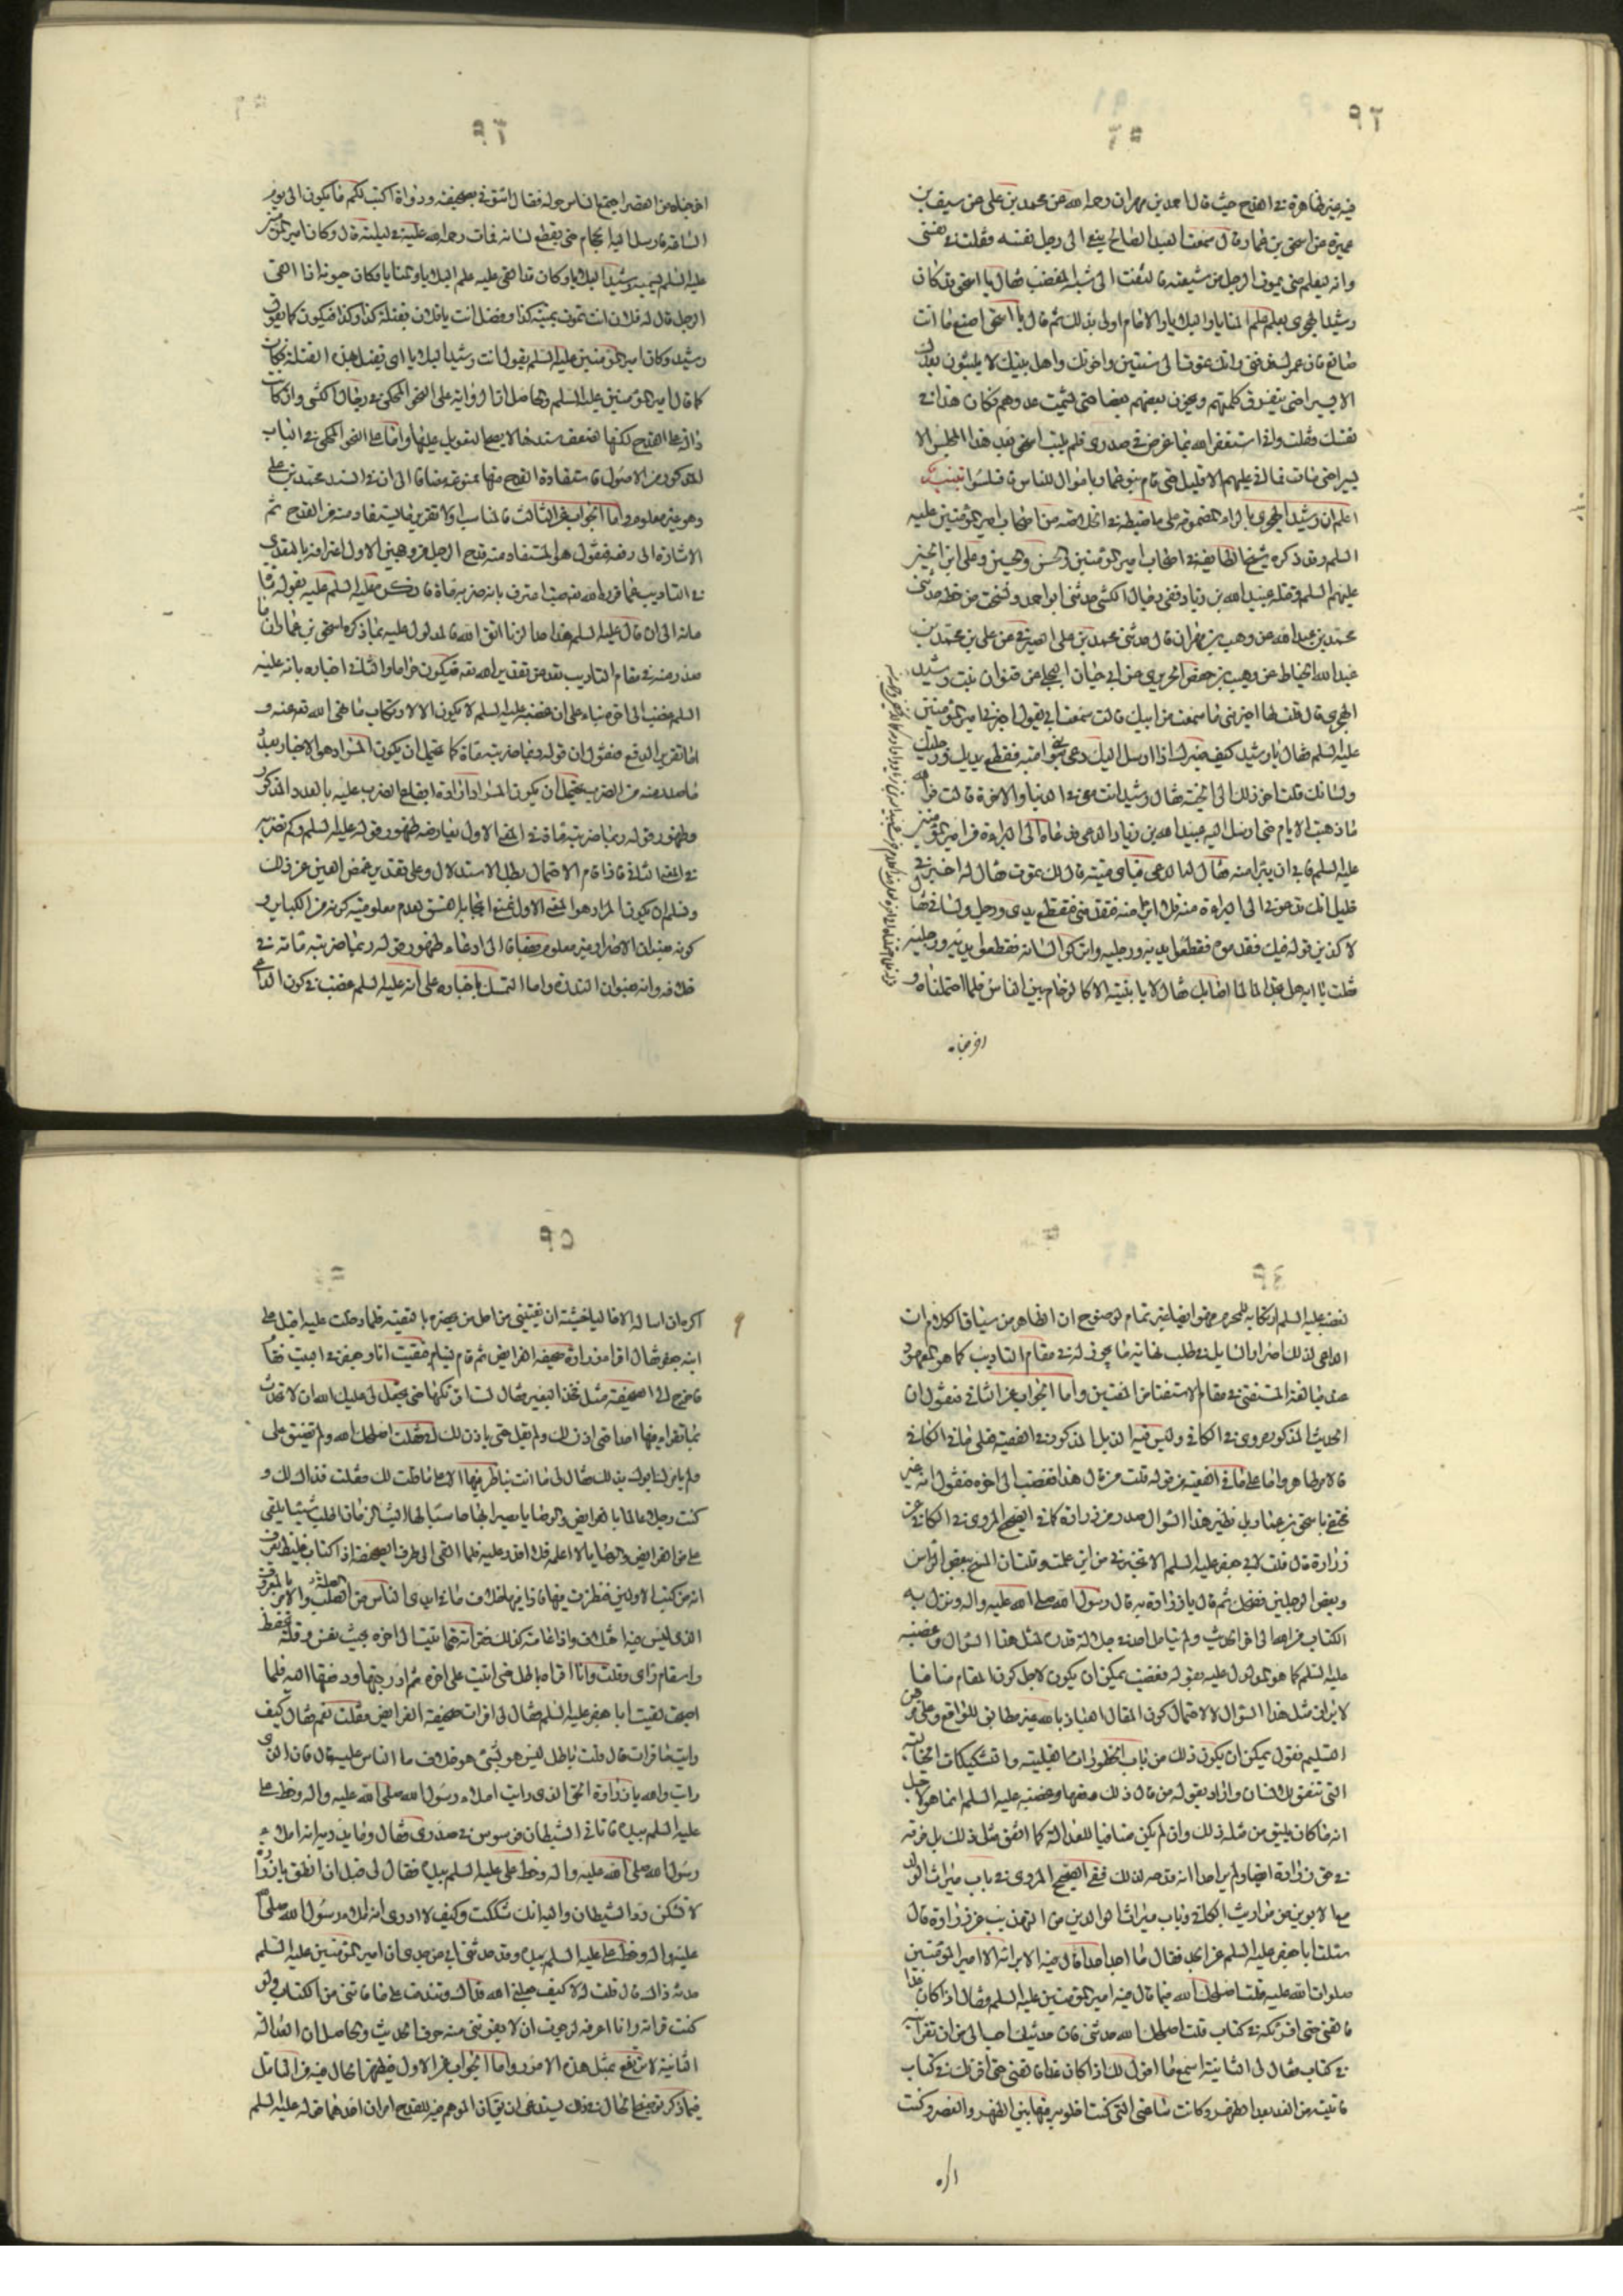 فيه غير ظاهرة في القدح حيث قال حمد بن مهران رحمه الله عن محمد بن علي عن سيف بن
عميرة عن اسحق بن عمار قال سمعت العبد الصالح ينعى الى رجل نفسه فقلت في نفسي
وانه ليعلم متى يموت الرجل من شيعته فالتفت الى شبه المغضب فقال يا اسحق قد كان
رشيد الهجري يعلم علم المنايا والبلايا والامام اولى بذلك ثم قال يا اسحق اصنع ما انت
صانع فان عمرك قد فنى وانك تموت الى سنتين واخوتك واهل بيتك لا يلبثون بعدك
الا يسيرا حتى يتفرق كلمتهم ويخون بعضهم بعضا حتى يشمت عدوهم فكان هذا في
نفسك فقلت واني استغفر الله بما عرض في صدري فلم يلبث اسحق بعد هذا المجلس الا
يسيرا حتى مات فما اتى عليهم الا قليل حتى قام بنو عمار باموال الناس فافلسوا تنبيه
اعلم ان رشيد الهجري بالراء المضمومة على ما ضبطه في الخلاصة من اصحاب امير المؤمنين عليه
السلم وقد ذكره شيخ الطايفة في اصحاب امير المؤمنين والحسن والحسين وعلي ابن الحسين
عليهم السلم قتله عبيد الله بن زياد ففي رجال الكشي حدثني ابو احمد ونسخت من خطه حدثني
محمد بن عبد الله عن وهب بن مهران قال حدثني محمد بن علي الصيرفي عن علي بن محمد بن
عبد الله الخياط عن وهيب بن حفص الحريري عن ابي حيان البجلي عن قنوان بنت رشيد
الهجري قال قلت لها اخبرني ما سمعت من ابيك قالت سمعت ابي يقول اخبرني امير المؤمنين
عليه السلم فقال يا رشيد كيف صبرك اذا ارسل اليك دعي بني امية فقطع يديك ورجليك
ولسانك قلت اخر ذلك الى الجنة فقال رشيد انت معي في الدنيا والاخرة قالت فوالله
ما ذهبت الايام حتى ارسل اليه عبيد الله بن زياد الدعي فدعاه الى البراءة من امير المؤمنين
عليه السلم فابى ان يتبرا منه فقال له الدعي فباي ميتة قال لك تموت فقال له اخبرني
خليلي انك تدعوني الى البراءة منه فلا ابرا منه فتقدمني فتقطع يدي ورجلي ولساني فقال
لاكذبن قوله فيك فقدموه فقطعوا يديه ورجليه واتركوا لسانه فقطعوا يديه ورجليه
فقلت يا ابه هل تجد الما لما اصابك فقال لا يا بنية الا كالزحام بين الناس فلما احتملناه و
اخرجناه
اخرجناه من القصر اجتمع الناس حوله فقال ائتوني بصحيفة ودواة اكتب لكم ما يكون الى يوم
الساعة فارسل اليه الحجام حتى يقطع لسانه فمات رحمة الله عليه في ليلته قال وكان امير المؤمنين
عليه السلم يسميه رشيد البلايا وكان قد القي عليه علم البلايا والمنايا وكان حيوته اذا لقي
الرجل قال له فلان انت تموت بميتة كذا وتقتل انت يا فلان بقتلة كذا وكذا فيكون كما يقول
رشيد وكان امير المؤمنين عليه السلم يقول انت رشيد البلايا اي تقتل بهذه القتلة فكان
كما قال امير المؤمنين عليه السلم والحاصل ان الرواية على النحو المحكي في رجال الكشي وان كانت
دالة على القدح لكنها لضعف سندها لا يصلح التعويل عليها واما على النحو المحكي في الباب
المذكور من الاصول فاستفادة القدح منها ممنوعة مضافا الى ان في السند محمد بن علي
وهو غير معلوم واما الجواب عن الثالث فالمناسب اولا تقرير ما يستفاد منه من القدح ثم
الاشارة الى دفعه فنقول هو المستفاد منه قدح الرجل من وجهين الاول اعترافه بالتعدي
في التاديب عما قرر الله تعه حيث اعترف بانه ضربه مائة فانكر عليه السلم عليه بقوله
مائة الى ان قال عليه السلم هذا حد الزنا اتق الله فالمدلول عليه بما ذكره اسحق بن عمار ان ما
صدر منه في مقام التاديب تعد عن تقدير الله تعه فيكون حراما والثاني اخباره بانه عليه
السلم غضب الى اخره بناء على ان غضبه عليه السلم لا يكون الا لارتكاب ما نهى الله تعه عنه و
اما تقرير الدفع فنقول ان قوله ربما ضربته مائة كما يحتمل ان يكون المراد هو الاخبار بعدد
ما صدر منه من الضرب يحتمل ان يكون المراد ارادة ايقاع الضرب عليه بالعدد المذكور
وظهور قوله ربما ضربته مائة في المعنى الاول يعارضه ظهور قوله عليه السلم وكم تضربه
في المعنى الثاني فاذا قام الاحتمال بطل الاستدلال وعلى تقدير غمض العين عن ذلك
وتسليم ان يكون المراد هو المعنى الاول نمنع ايجابه الفسق لعدم معلومية كونه من الكباير و
كونه عنوان الاصرار غير معلوم مضافا الى ادعاء ظهور قوله ربما ضربته مائة في
خلافه وانه عنوان الندرة واما التمسك باخباره على انه عليه السلم غضب في كون الداعي
لغضبه عليه السلم ارتكابه للمحرم فهو ايضا غير تمام لوضوح ان الظاهر من سياق الكلام ان
الداعي لذلك اصرار السايل في طلب نهاية ما يجوز له في مقام التاديب كما هو المعهود
عند مبالغة المستفتي في مقام الاستفتاء من المفتين واما الجواب عن الثاني فنقول ان
الحديث المذكور مروي في الكافي وليس فيه الذيل المذكور في الفقيه فعلى ما في الكافي
فالامر ظاهر واما على ما في الفقيه من قوله قلت من قال هذا فغضب الى اخره فنقول انه غير
مختص باسحق بن عمار بل نظير هذا السؤال صدر من زرارة كما في الصحيح المروي في الكافي عن
زرارة قال قلت لابي جعفر عليه السلم الا تخبرني من اين علمت وقلت ان المسح ببعض الراس
وبعض الرجلين فضحك ثم قال يا زرارة قال رسول الله صلى الله عليه واله ونزل به
الكتاب من الله الى اخر الحديث ولم يتامل احد في جلالة قدره لمثل هذا السؤال وغضبه
عليه السلم كما هو المدلول عليه بقوله فغضب يمكن ان يكون لاجل كون المقام منافيا
لايراد مثل هذا السؤال لا لاحتمال كون المقال العياذ بالله غير مطابق للواقع وعلى فرض
التسليم نقول يمكن ان يكون ذلك من باب الخطورات القلبية والتشكيكات الخيالية
التي تتفق للانسان واراد بقوله من قال ذلك دفعها وغضبه عليه السلم انما هو لاجل
انه ما كان يليق من مثله ذلك وان لم يكن منافيا للعدالة كما اتفق مثل ذلك بل فوقه
في حق زرارة ايضا ولم ير احد انه قدحه لذلك ففي الصحيح المروي في باب ميراث الولد
مع الابوين من مواريث الكافي وباب ميراث الوالدين من التهذيب عن زرارة قال
سئلت ابا جعفر عليه السلم عن الجد فقال ما اجد احدا قال فيه الا برايه الا امير المؤمنين
صلوات الله عليه قلت اصلحك الله فما قال فيه امير المؤمنين عليه السلم فقال اذا كان غدا
فالقني حتى اقرئكه في كتاب قلت اصلحك الله حدثني فان حديثك احب الي من ان تقرانيه
في كتاب فقال لي الثانية اسمع ما اقول لك اذا كان غدا فالقني حتى اقرئكه في كتاب
فاتيته من الغد بعد الظهر وكانت ساعتي التي كنت اخلو به فيها بين الظهر والعصر وكنت
اكره
اكره ان اساله الا خاليا خشية ان يفتيني من اجل من يحضره بالتقية فلما دخلت عليه اقبل على
ابنه جعفر فقال اقراء زرارة صحيفة الفرائض ثم قام لينام فبقيت انا وجعفر في البيت فقام
فاخرج الي صحيفة مثل فخذ البعير فقال لست اقرئكها حتى تجعل لي عليك الله ان لا تحدث
بما تقرا فيها احدا حتى اذن لك ولم يقل حتى ياذن لك ابي فقلت اصلحك الله ولم تضيق علي
ولم يامرك ابوك بذلك فقال لي ما انت بناظر فيها الا على ما قلت لك فقلت فذاك لك و
كنت رجلا عالما بالفرائض والوصايا بصيرا بها حاسبا لها البث الزمان اطلب شيئا يلقى
علي من الفرائض والوصايا لا اعلمه فلا اقدر عليه فلما القى الي طرف الصحيفة اذا كتاب غليظ يعرف
انه من كتب الاولين فنظرت فيها فاذا فيها خلاف ما في ايدي الناس من الصلة والامر بالمعروف
الذي ليس فيه اختلاف واذا عامته كذلك فقراته حتى اتيت الى اخره بخبث نفس وقلة تحفظ
واسقام راي وقلت وانا اقراه باطل حتى اتيت على اخره ثم ادرجتها ودفعتها اليه فلما
اصبحت لقيت ابا جعفر عليه السلم فقال لي اقرات صحيفة الفرائض فقلت نعم فقال كيف
رايت ما قرات قال قلت باطل ليس هو بشيء هو خلاف ما الناس عليه قال فان الذي
رايت والله يا زرارة الحق الذي رايت املاء رسول الله صلى الله عليه واله وخط علي
عليه السلم بيده فاتاني الشيطان فوسوس في صدري فقال وما يدريه انه املاء
رسول الله صلى الله عليه واله وخط علي عليه السلم بيده فقال لي قبل ان انطق يا زرارة
لا تشكن ود الشيطان والله انك شككت وكيف لا ادري انه املاء رسول الله صلى الله
عليه واله وخط علي عليه السلم بيده وقد حدثني ابي عن جدي ان امير المؤمنين عليه السلم
حدثه ذلك قال قلت لا كيف جعلني الله فداك وتندمت على ما فاتني من الكتاب ولو
كنت قراته وانا اعرفه لرجوت ان لا يفوتني منه حرف الحديث والحاصل ان العدالة
الثابتة لا ترتفع بمثل هذه الامور واما الجواب عن الاول فيظهر الحال فيه من التامل
فيما ذكر توضيح الحال في ذلك يستدعي ان يقال ان الموهم فيه للقدح امران احدهما قوله عليه السلم